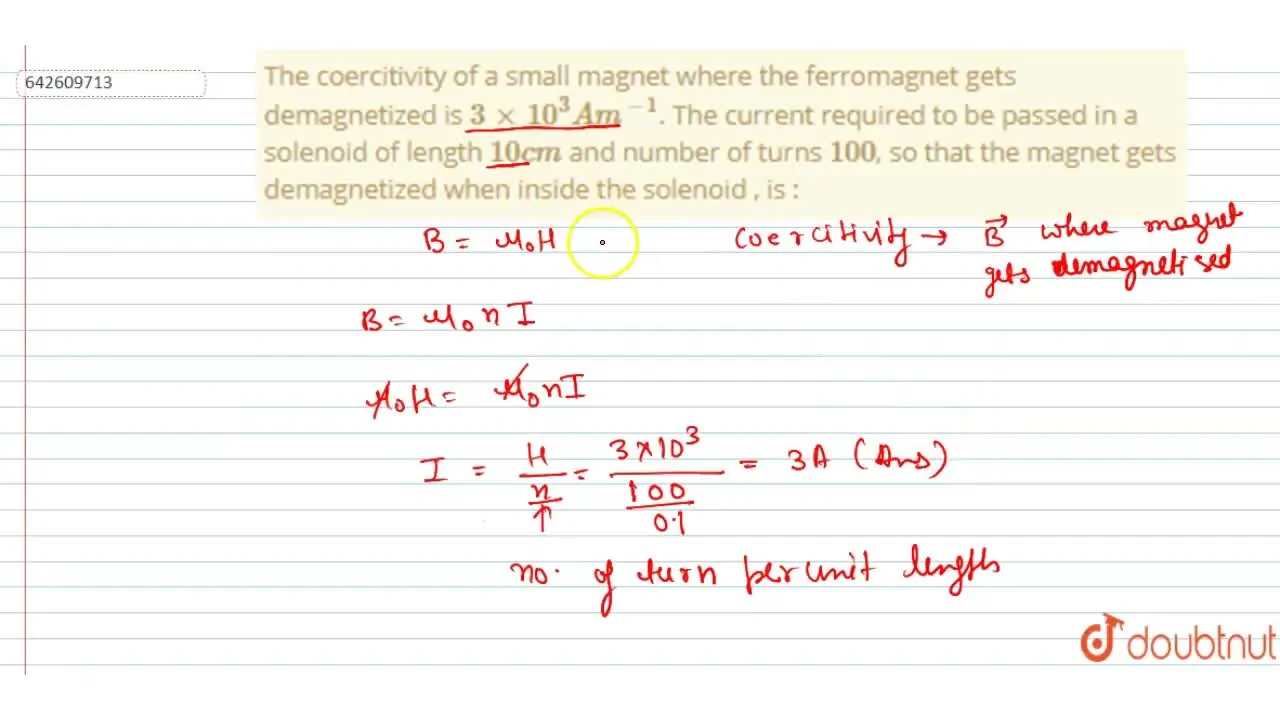 642609713
The coercitivity of a small magnet where the ferromagnet gets
demagnetized is 3 × 10³ Am⁻¹. The current required to be passed in a
solenoid of length 10cm and number of turns 100, so that the magnet gets
demagnetized when inside the solenoid , is :
B = μ₀H
Coercitivity → B⃗ where magnet
gets demagnetised
B = μ₀ n I
μ₀H = μ₀nI
I = H/n = 3×10³/(100/0.1) = 3A (Ans)
↑
no. of turn per unit length
doubtnut